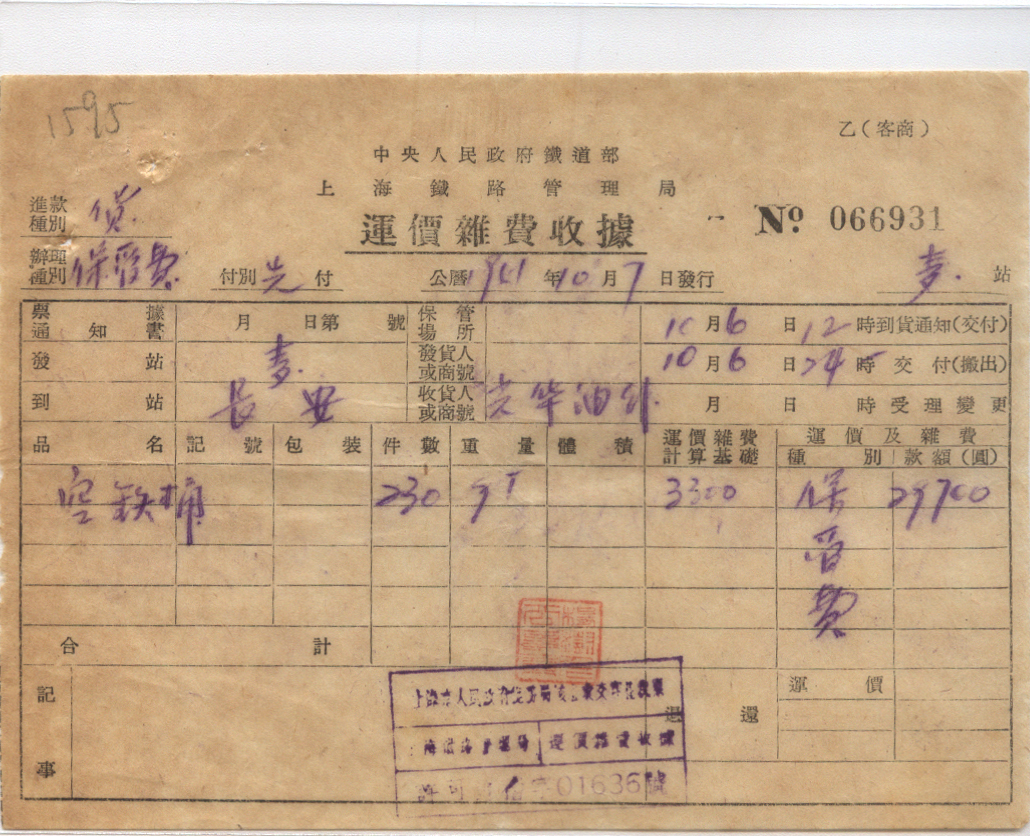 1595
乙(客商)
中央人民政府鐵道部
上海鐵路管理局
運價雜費收據
No 066931
進款種別 貨
辦理種別 保管費
付別 先 付
公曆 年10月7日發行
麦 站
票據通知書 月 日第 號
保管場所
10月6日12時到貨通知(交付)
發站 麦
發貨人或商號
10月6日24時交付(搬出)
到站 長安
收貨人或商號 光华油
月 日 時受理變更
品名 記號 包裝 件數 重量 體積 運價雜費計算基礎 運價及雜費
種別 款額(圓)
空鉄桶 230 9T 3300 保管費 29700
合計
記事
運價
退還
上海市人民政府
海鐵路管理局 運價雜費收據
許可 字01636號